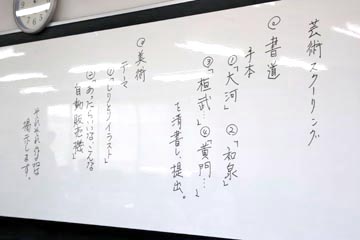 芸術スクーリング
◎書道
手本
①「大河」 ②「和泉」
③「桓武…」 ④「黄門…」
を清書し、提出。
◎美術
テーマ
①「しりとりイラスト」
②「あったらいいな、こんな
自動販売機」